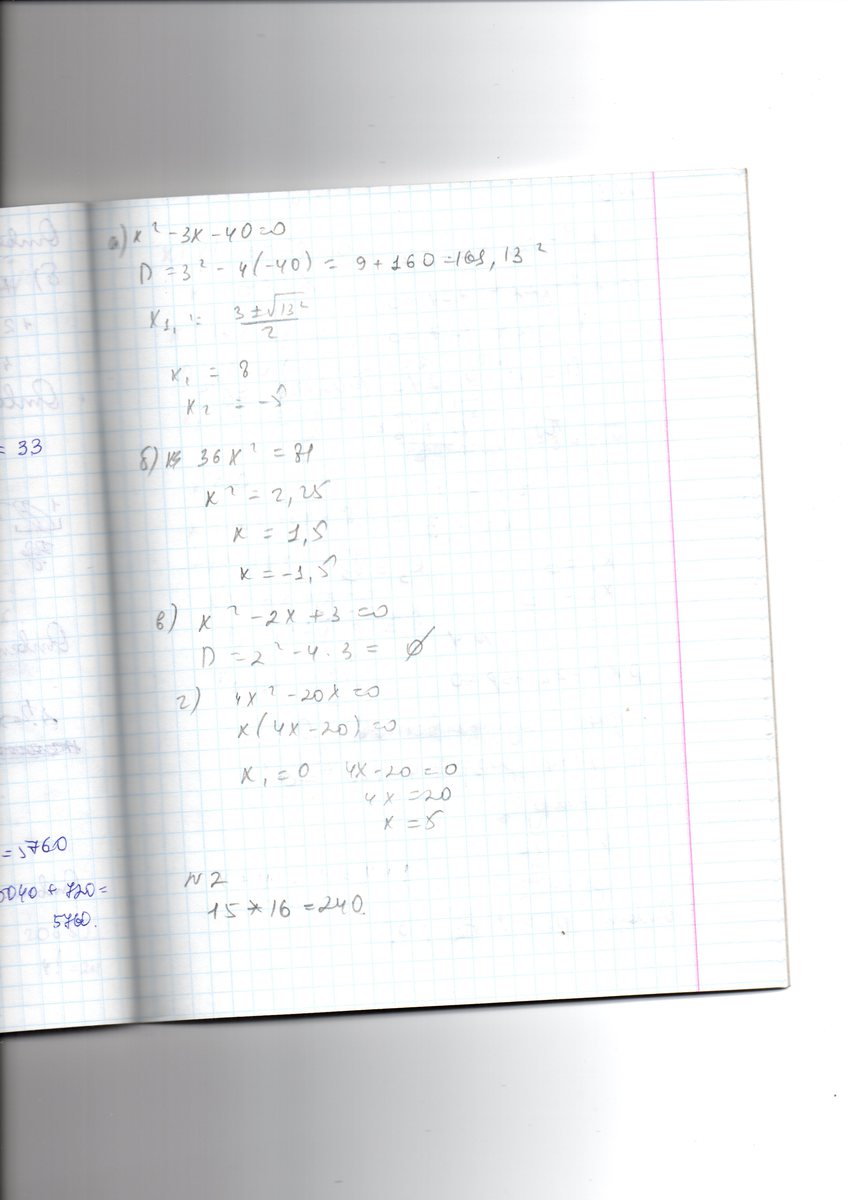 а) x² - 3x - 40 = 0
D = 3² - 4(-40) = 9 + 160 = 169, 13²
x₁, = (3 ± √13²)/2
x₁ = 8
x₂ = -5
б) 36x² = 81
x² = 2,25
x = 1,5
x = -1,5
в) x² - 2x + 3 = 0
D = 2² - 4 · 3 = ∅
г) 4x² - 20x = 0
x(4x - 20) = 0
x₁ = 0 4x - 20 = 0
4x = 20
x = 5
№2
15 * 16 = 240.
= 33
= 5760
5040 + 720 =
5760.